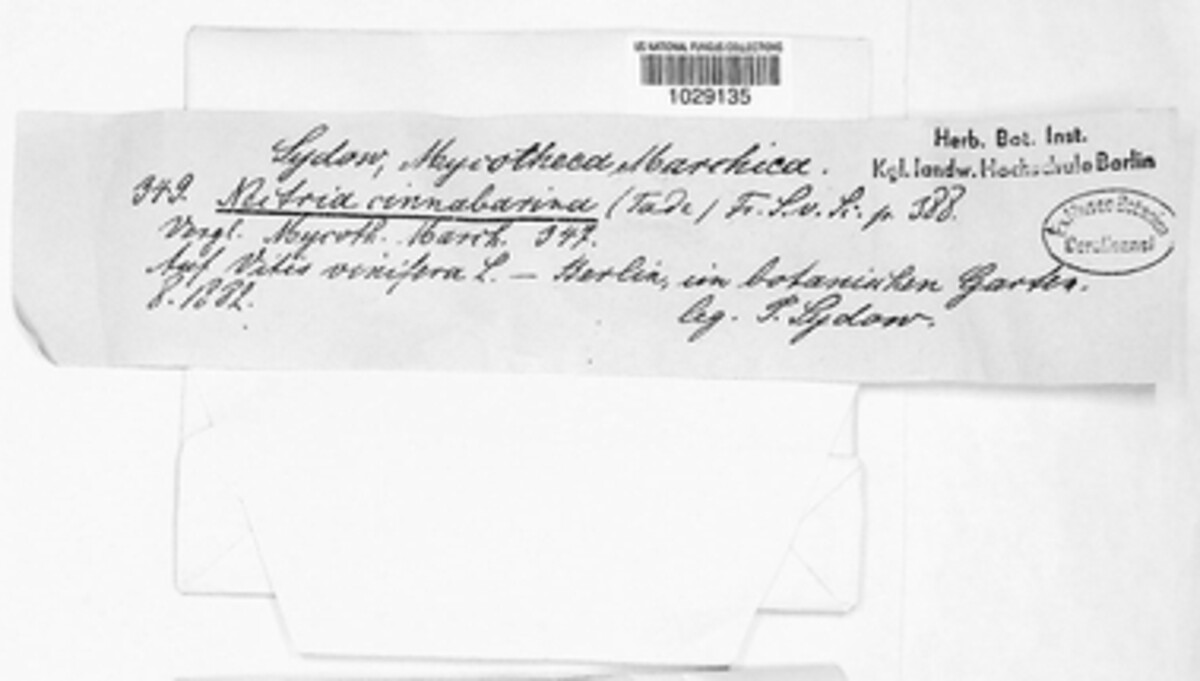 US NATIONAL FUNGUS COLLECTIONS
1029135
Herb. Bot. Inst.
Kgl. landw. Hochschule Berlin
Sydow, Mycotheca Marchica.
349. Nectria cinnabarina (Tode) Fr. S. v. Sc. p. 388.
Vergl. Mycoth. March. 347.
Auf Vitis vinifera L. — Berlin, im botanischen Garten.
8. 1882. leg. P. Sydow.